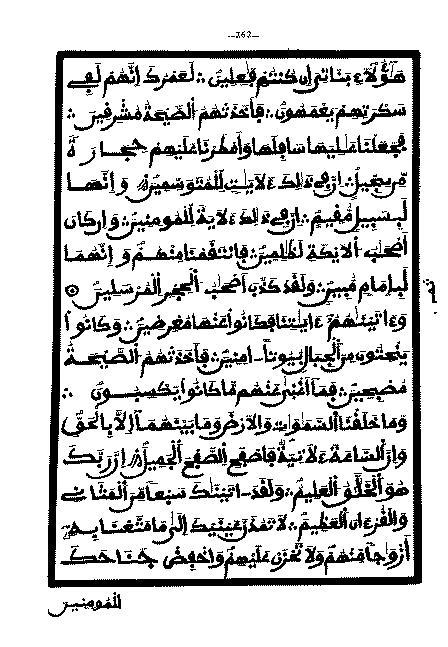 —262—
هَٰٓؤُلَآءِ بَنَاتِيَ إِن كُنتُمْ فَٰعِلِينَ ∴ لَعَمْرُكَ إِنَّهُمْ لَفِے
سَكْرَتِهِمْ يَعْمَهُونَ ∴ فَأَخَذَتْهُمُ الصَّيْحَةُ مُشْرِقِينَ ∴
فَجَعَلْنَا عَٰلِيَهَا سَافِلَهَا وَأَمْطَرْنَا عَلَيْهِمْ حِجَارَةً
مِّن سِجِّيلٍ ∴ إِنَّ فِي ذَٰلِكَ لَأٓيَٰتٍ لِّلْمُتَوَسِّمِينَ ∴ وَإِنَّهَا
لَبِسَبِيلٍ مُّقِيمٍ ∴ إِنَّ فِي ذَٰلِكَ لَأٓيَةً لِّلْمُومِنِينَ ∴ وَإِن كَانَ
أَصْحَٰبُ الَايْكَةِ لَظَٰلِمِينَ ∴ فَانتَقَمْنَا مِنْهُمْ وَإِنَّهُمَا
لَبِإِمَامٍ مُّبِينٍ ∴ وَلَقَدْ كَذَّبَ أَصْحَٰبُ الْحِجْرِ الْمُرْسَلِينَ
ثمن
وَءَاتَيْنَٰهُمُ ءَايَٰتِنَا فَكَانُوا عَنْهَا مُعْرِضِينَ ∴ وَكَانُوا
يَنْحِتُونَ مِنَ الْجِبَالِ بُيُوتاً ـامِنِينَ ∴ فَأَخَذَتْهُمُ الصَّيْحَةُ
مُصْبِحِينَ ∴ فَمَا أَغْنَىٰ عَنْهُم مَّا كَانُوا يَكْسِبُونَ ∴
وَمَا خَلَقْنَا السَّمَٰوَٰتِ وَالَارْضَ وَمَا بَيْنَهُمَا إِلَّا بِالْحَقِّ
وَإِنَّ السَّاعَةَ لَأٓتِيَةٌ فَاصْفَحِ الصَّفْحَ الْجَمِيلَ ∴ إِنَّ رَبَّكَ
هُوَ الْخَلَّٰقُ الْعَلِيمُ ∴ وَلَقَدَ ـاتَيْنَٰكَ سَبْعاً مِّنَ الْمَثَانِے
وَالْقُرْءَانَ الْعَظِيمَ ∴ لَا تَمُدَّنَّ عَيْنَيْكَ إِلَىٰ مَا مَتَّعْنَا بِهِ
أَزْوَٰجاً مِّنْهُمْ وَلَا تَحْزَنْ عَلَيْهِمْ وَاخْفِضْ جَنَاحَكَ
لِلْمُومِنِينَ